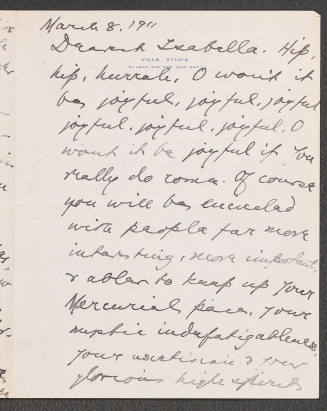 March 8. 1911
Dearest Isabella. Hip,
VILLA SYLVIA
hip, hurrah, O won't it
be joyful, joyful, joyful
joyful, joyful, joyful, O
wont it be joyful if you
really do come. Of course
you will be encircled
with people far more
interesting, more important,
& abler to keep up your
Mercurial pace. Your
indefatigableness,
your & your
glorious high spirits